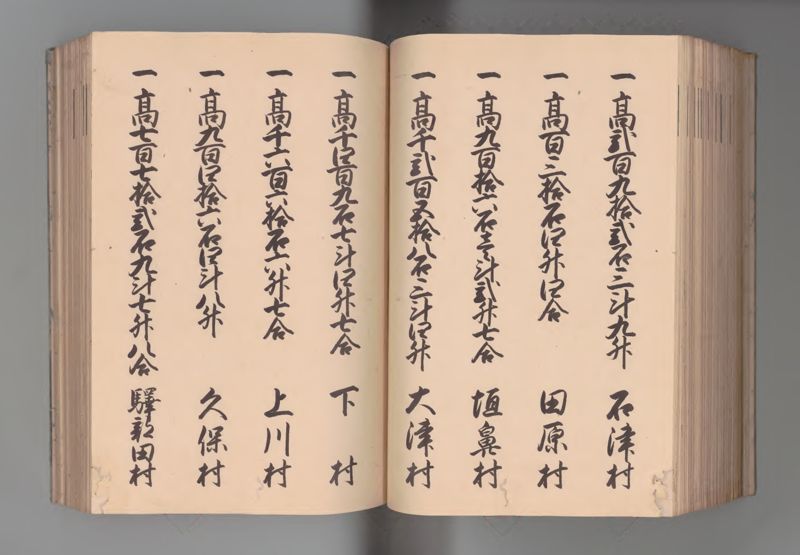 一 高貳百九拾貳石三斗九升 石津村
一 高百三拾石四升四合 田原村
一 高九百拾六石壱斗貳升七合 垣鼻村
一 高千貳百五拾八石三斗四升 大津村
一 高千四百九石七斗四升七合 下村
一 高千六百六拾石六升七合 上川村
一 高九百四拾六石四斗八升 久保村
一 高七百七拾貳石九斗七升八合 驛部田村